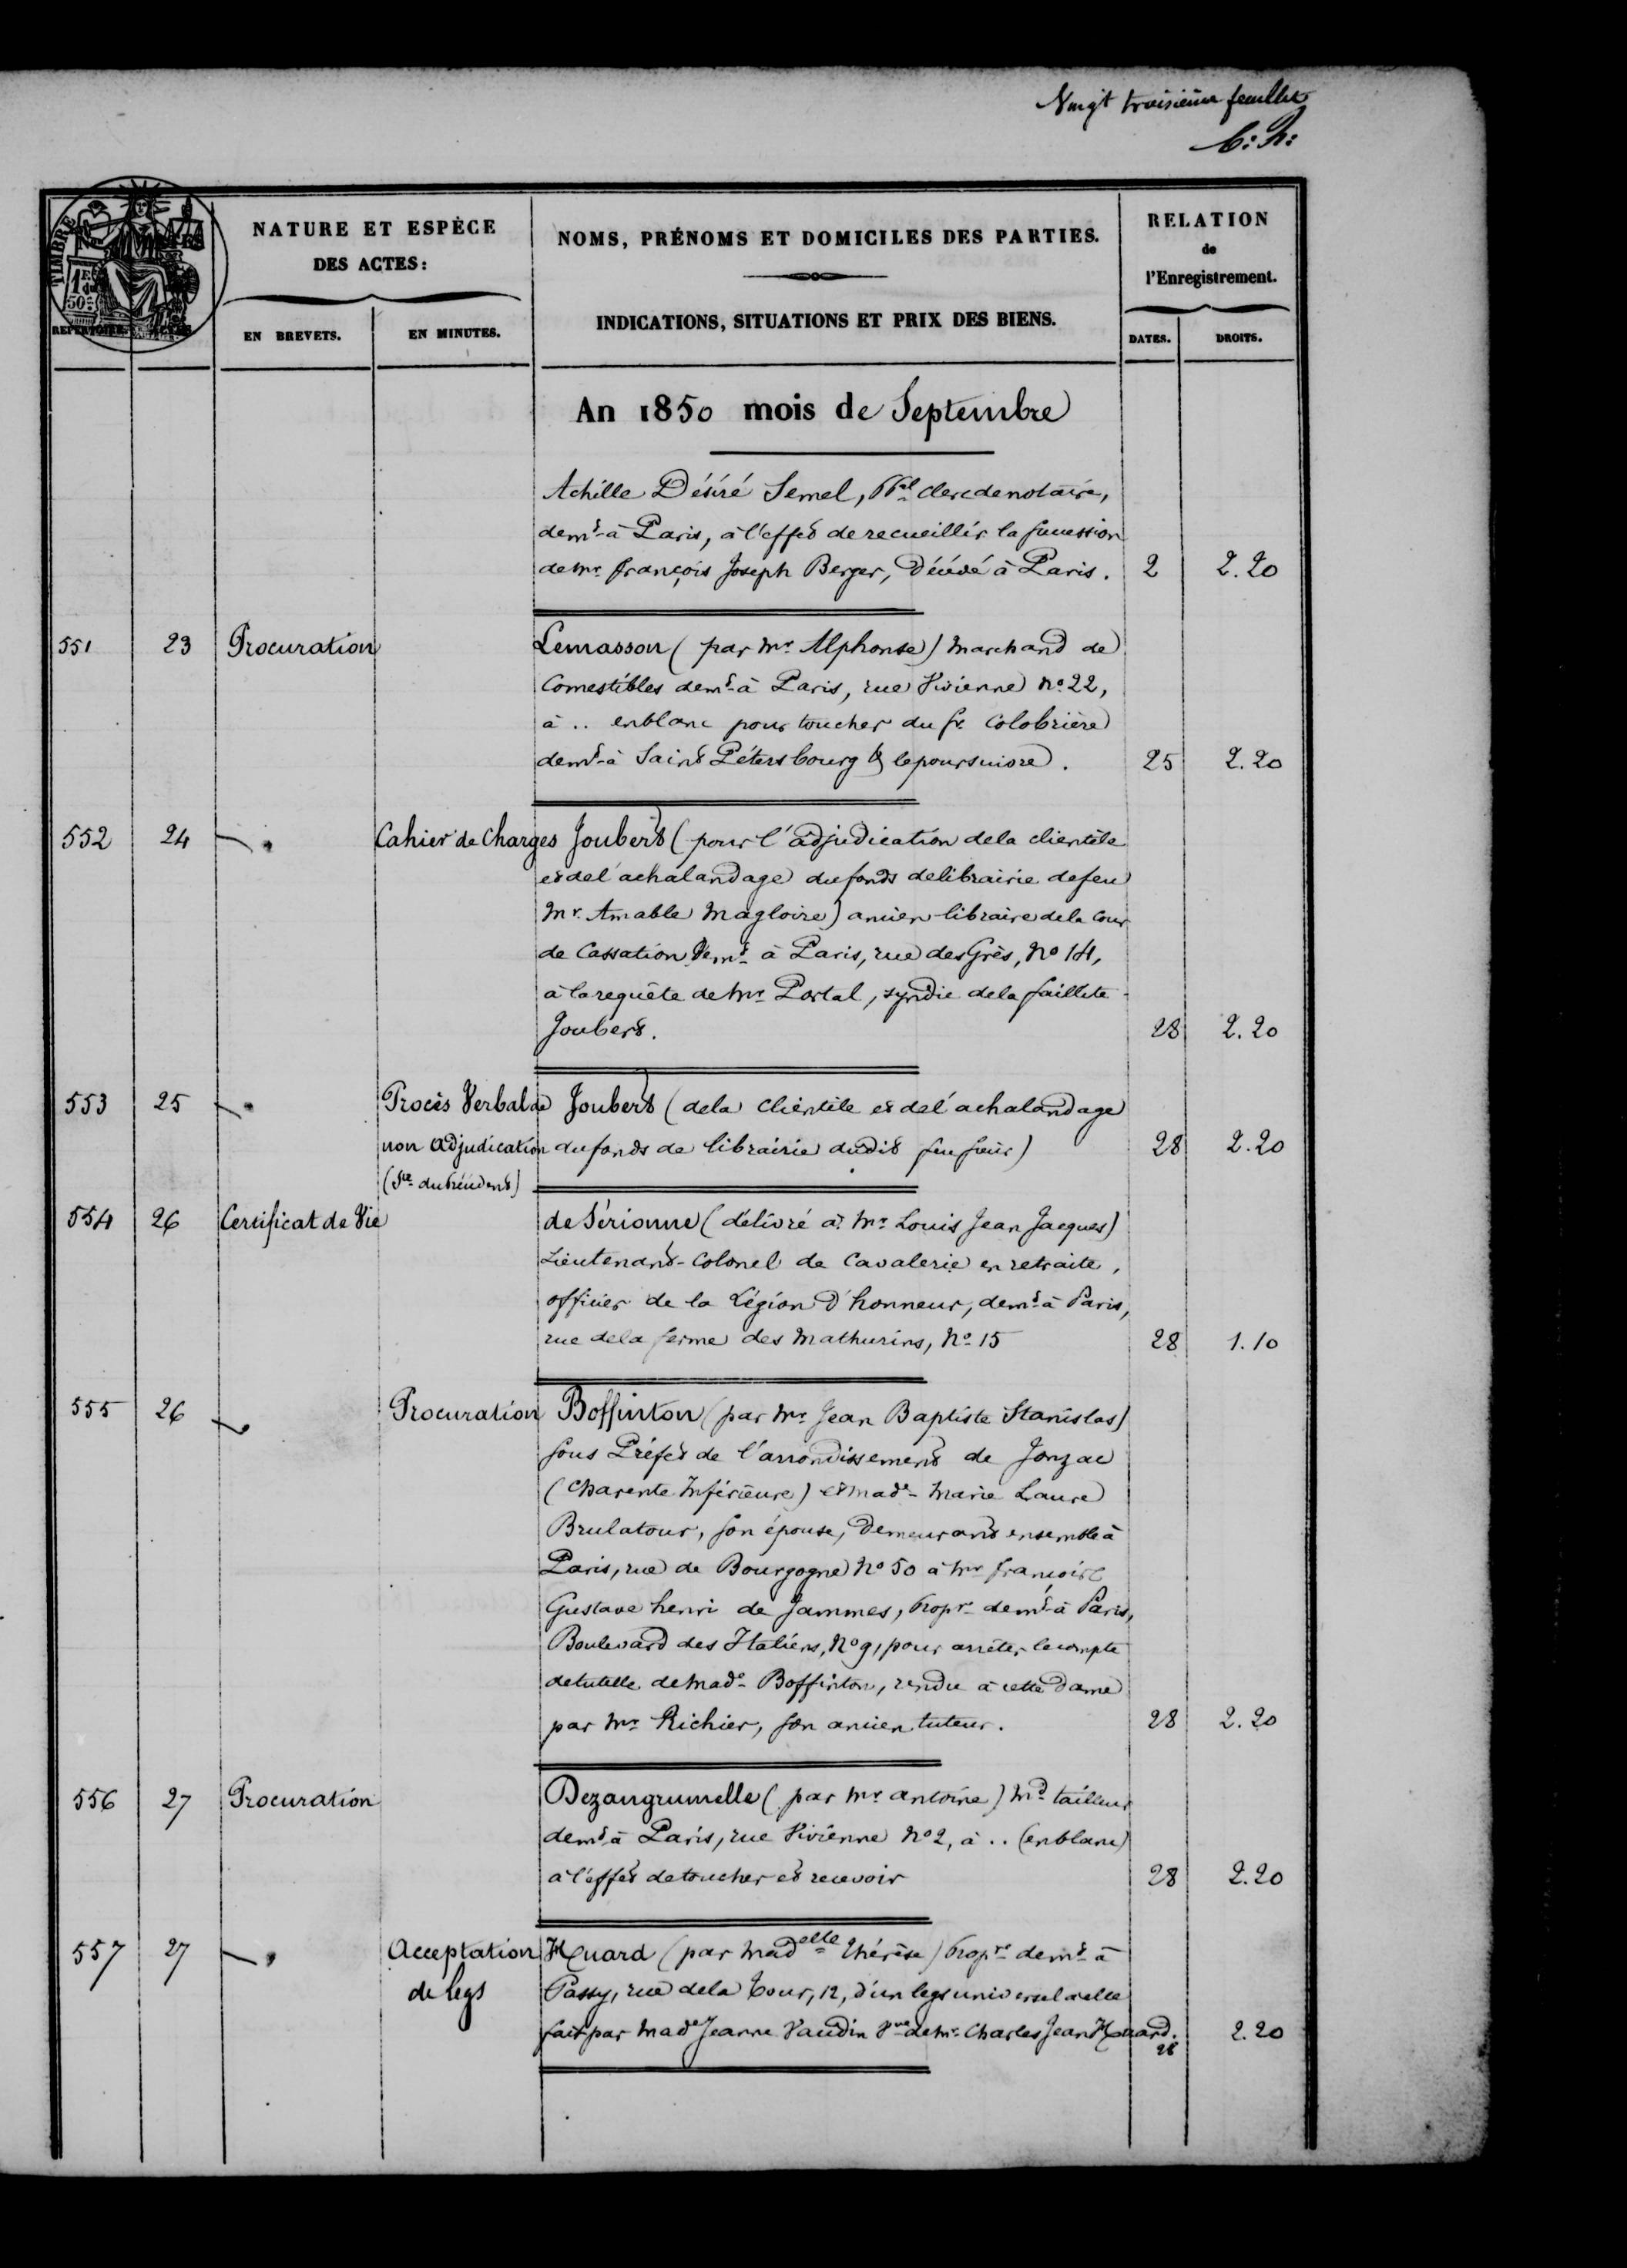 Vingt troisième feuillet
TIMBRE
1F
50
NATURE ET ESPÈCE
DES ACTES:
EN BREVETS.
EN MINUTES.
NOMS, PRÉNOMS ET DOMICILES DES PARTIES.
INDICATIONS, SITUATIONS ET PRIX DES BIENS.
RELATION
de
l'Enregistrement.
DATES.
DROITS.
An 1850 mois de Septembre
Achille Désiré Semel, Pal clerc de notaire,
demt à Paris, à l'effet de recueillir la succession
de Mr. François Joseph Berger, Décédé à Paris. 2 2.20
551 23 Procuration Lemasson (par Mr. Alphonse) Marchand de
Comestibles demt à Paris, rue Vivienne No. 22,
à .. en blanc pour toucher du Sr. Colobrière
demt à Saint Pétersbourg & le poursuivre. 25 2.20
552 24 Cahier de Charges Joubert (pour l'adjudication de la clientèle
et de l'achalandage du fonds de librairie de feu
Mr. Amable Magloire) ancien libraire de la Cour
de Cassation demt à Paris, rue des Grès, No 14,
à la requête de Mr. Portal, syndic de la faillite
Joubert. 28 2.20
553 25 Procès Verbal de Joubert (de la Clientèle et de l'achalandage
non adjudication du fonds de librairie dudit feu sieur) 28 2.20
(Ste du précédent)
554 26 Certificat de Vie de Sérionne (délivré à Mr. Louis Jean Jacques)
Lieutenant-Colonel de Cavalerie en retraite,
officier de la Légion D'honneur, demt à Paris,
rue de la ferme des Mathurins, No. 15 28 1.10
555 26 Procuration Boffinton (par Mr. Jean Baptiste Stanislas)
Sous Préfet de l'arrondissement de Jonzac
(Charente Inférieure) et Made Marie Laure
Brulatour, son épouse, Demeurant ensemble à
Paris, rue de Bourgogne No 50 à Mr. François
Gustave henri de Jammes, Propre demt à Paris,
Boulevard des Italiens, No 9, pour arrêter le compte
de tutelle de Made Boffinton, rendu à cette Dame
par Mr. Richier, son ancien tuteur. 28 2.20
556 27 Procuration Dezangrumelle (par Mr. antoine) Md tailleur
demt à Paris, rue Vivienne No 2, à .. (en blanc)
à l'effet de toucher et recevoir 28 2.20
557 27 Acceptation Huard (par Madelle Thérèse) Propre demt à
de legs Passy, rue de la Tour, 12, d'un legs universel à elle
fait par Made Jeanne Vaudin Vve de Mr. Charles Jean Huard. 28 2.20